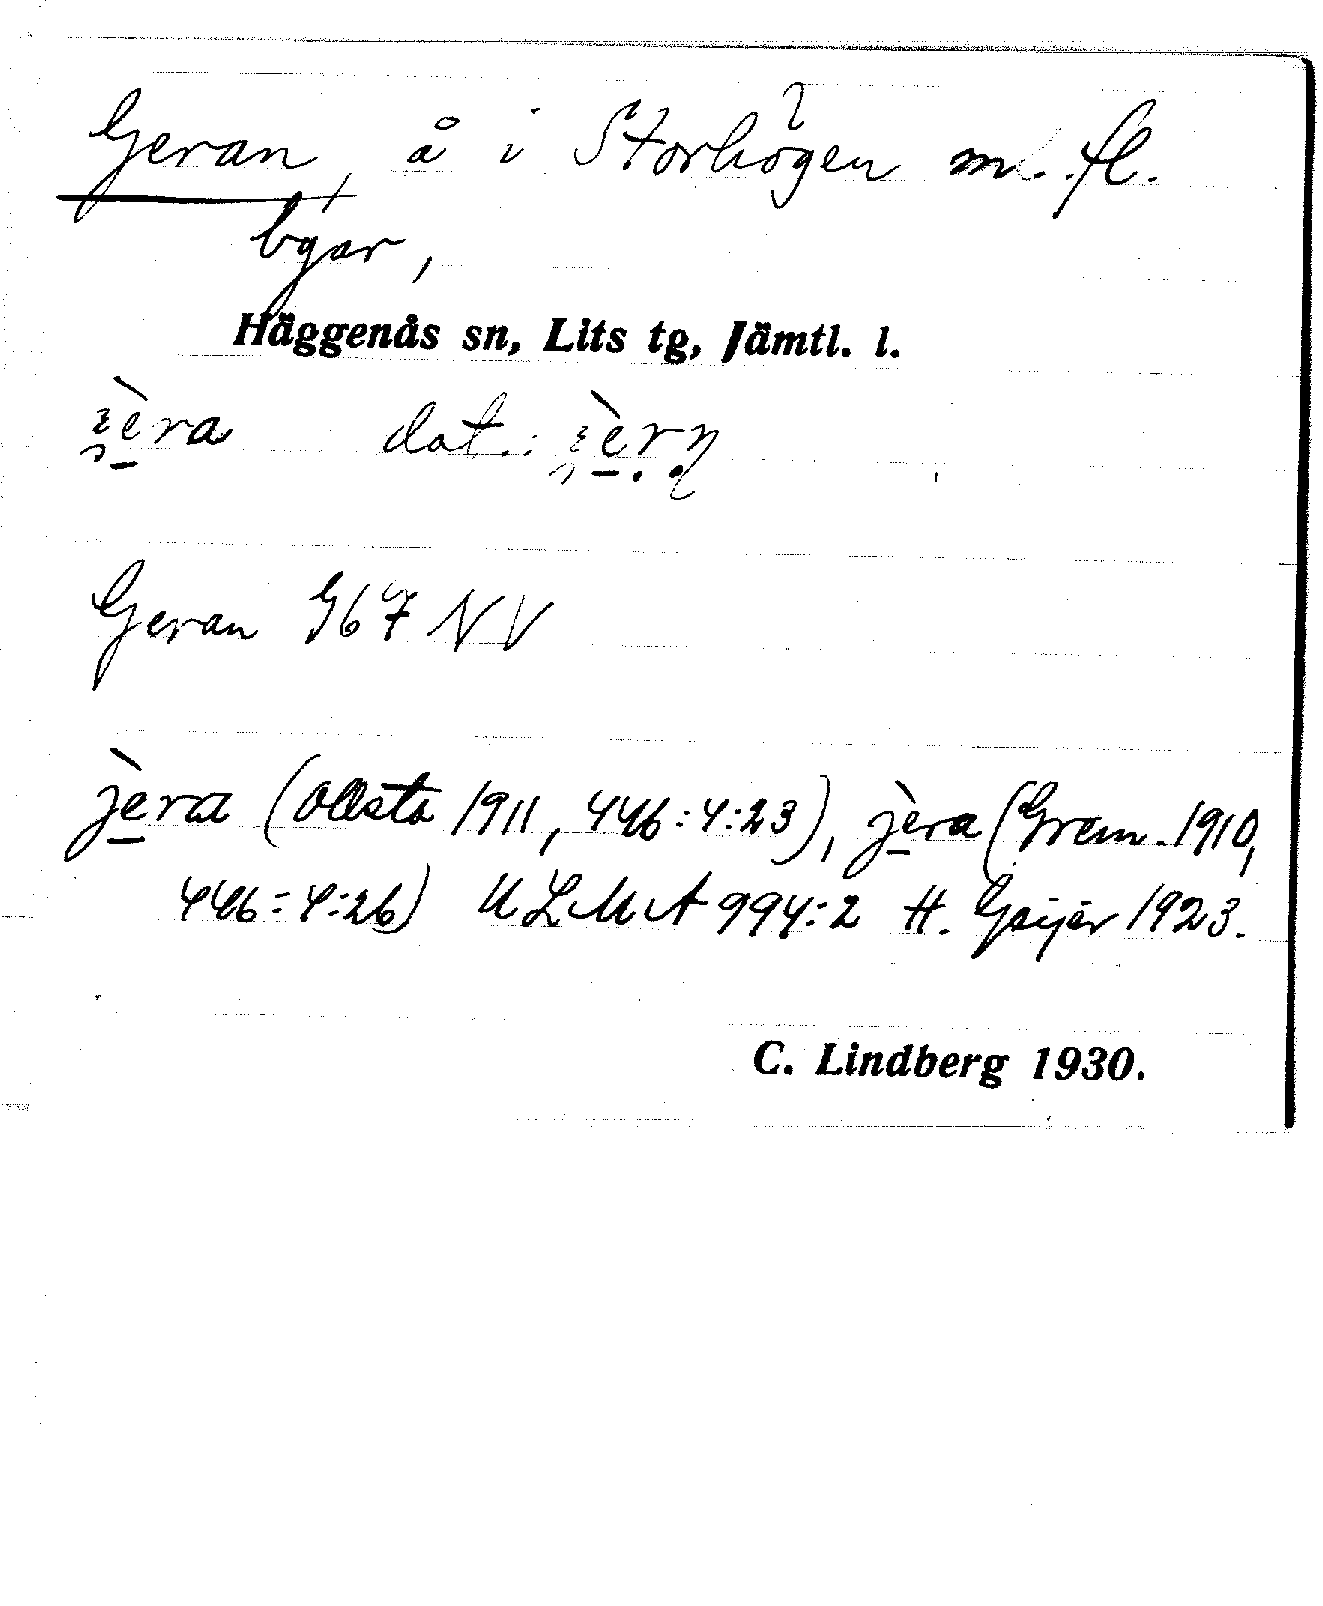 Geran, å i Storhögen m. fl.
byar,
Häggenås sn, Lits tg, Jämtl. l.
dat.:
Geran G67 NV
jèra (Ollsta 1911, 446:4:23), jèra (Grem. 1910,
446:4:26) ULMA 994:2 H. Geijer 1923.
C. Lindberg 1930.